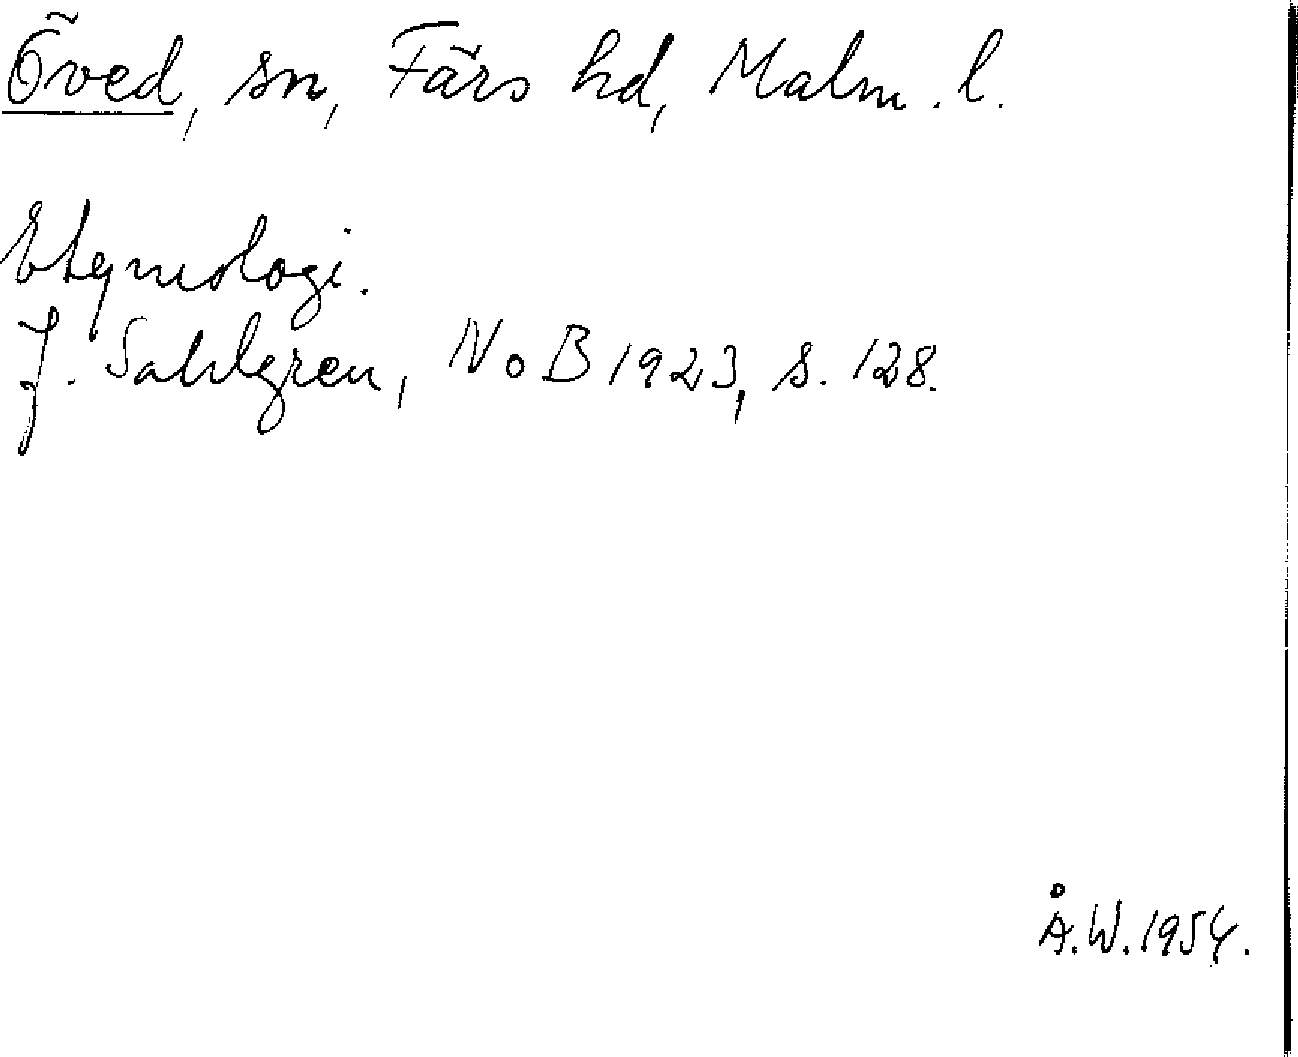 Öved, sn, Färs hd, Malm. l.
Etymologi.
J. Sahlgren, NoB 1923, s. 128.
Å.W. 1954.